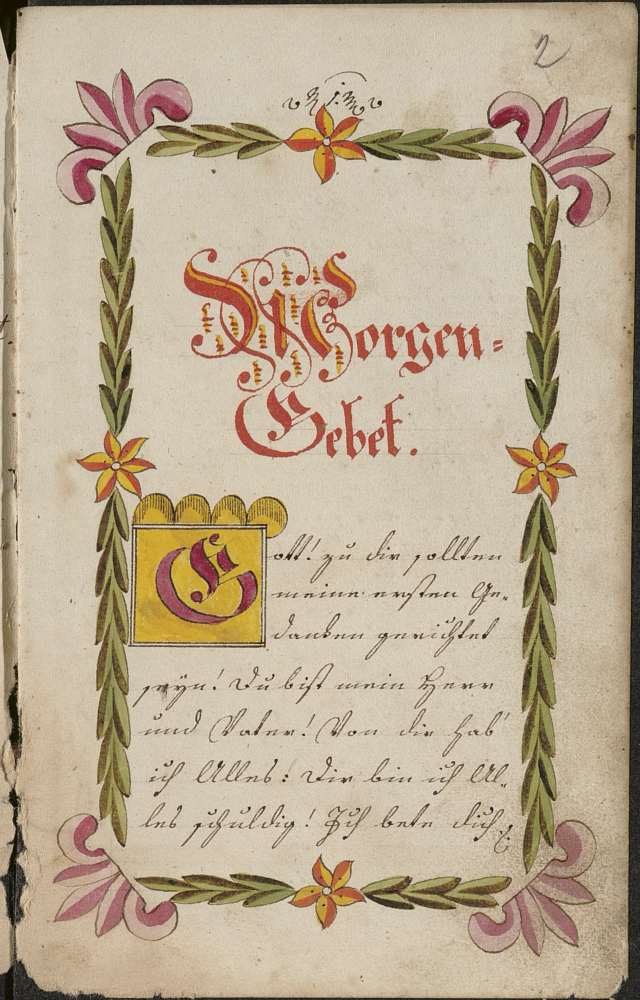 2
1.
Morgen=
Gebet.
Gott! zu dir sollten
meine ersten Ge=
danken gerichtet
seyn! Du bist mein Herr
und Vater! Von dir hab'
ich Alles! Dir bin ich Al=
les schuldig! Ich bete dich